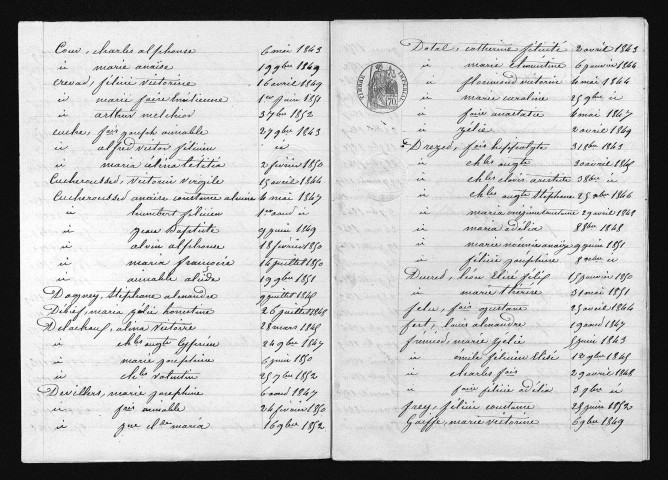 Cour, charles alphonse 6 mai 1843
ii marie anaïse 19 9bre 1849
crevat, félicie victorine 16 avril 1849
ii marie 1er juin 1851
ii arthur melchior 3 7bre 1852
cuche, fois joseph aimable 27 9bre 1843
ii alfred victor félicien ii
ii maria élina letitia 2 février 1850
Cucherousset, victorin virgile 15 avril 1844
Cucherousset anaïse constance 4 mai 1847
ii humbert félicien 1er aout ii
ii jean Baptiste 9 juin 1849
ii alvin alphonse 18 février 1850
ii maria françoise 14 juillet 1850
ii aimable 19 9bre 1851
Dagney, stéphane alexandre 9 juillet 1845
Débief, maria zélie honorine 26 juillet 1848
Delachaux, alina victoire 28 mars 1848
ii chles augte cyprien 24 9bre 1847
ii marie joséphine 6 juin 1850
ii chles valentin 25 7bre 1852
Devillers, marie josephine 6 aout 1847
ii fois aimable 24 février 1850
ii maria 16 9bre 1852
Dotal, catherine félicité 2 avril 1843
ii marie clémentine 6 janvier 1844
ii florimond victorin 4 mai 1844
ii marie caroline 25 9bre ii
ii fois anastase 6 mai 1847
ii zélie 2 avril 1849
Drezet, fois hippolyte 31 8bre 1843
ii chles augte 30 avril 1845
ii chles clovis aristide 3 8bre ii
ii chles augte stéphane 25 1846
ii maria 29 avril 1848
ii maria adélia 8 8bre 1848
ii marie noémie 9 juin 1851
ii félicie joséphine 8 ii
Ducret, léon élisé félix 15 janvier 1850
ii marie thérèse 31 mai 1851
felix, fois gustave 25 avril 1844
fert, louis alexandre 19 aout 1847
marie zélie 5 juin 1843
ii émile félicien élisé 12 9bre 1845
ii charles fois 29 avril 1848
ii félicie adélia 3 9bre ii
frey, félicie constance 23 juin 1852
Gaiffe, marie victorine 6 9bre 1849
TIMBRE IMPERIAL